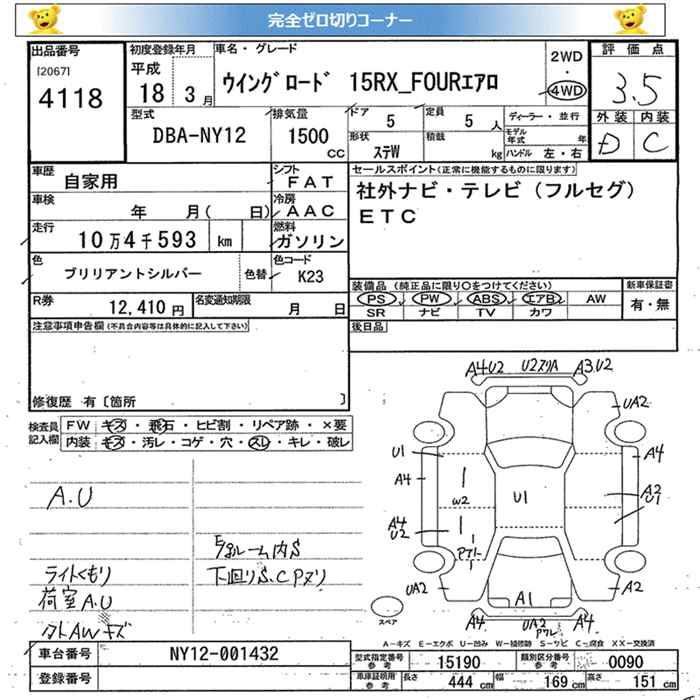 完全ゼロ切りコーナー
出品番号
[2067]
4118
初度登録年月
平成
18 3月
車名・グレード
ウイングロード 15RX_FOURエアロ
2WD
・
4WD
評価点
3.5
外装 内装
D C
型式
DBA-NY12
排気量
1500
CC
ドア
5
形状
ステW
定員
5 人
積載
kg
ディーラー・並行
モデル年式 年
ハンドル 左・右
車歴
自家用
シフト
FAT
車検
年 月( 日)
冷房
AAC
走行
10万4千593 km
燃料
ガソリン
色
ブリリアントシルバー
色替
色コード
K23
R券
12,410円
名変通知期限
月 日
セールスポイント(正常に機能するものに限ります)
社外ナビ・テレビ(フルセグ)
ETC
装備品(純正品に限り○をつけてください)
新車保証書
PS PW ABS エアB AW
有・無
SR ナビ TV カワ
後日品
注意事項申告欄(不具合内容等は具体的に記入して下さい)
修復歴 有〔箇所 〕
検査員記入欄
FW キズ・飛石・ヒビ割・リペア跡・×要
内装 キズ・汚レ・コゲ・穴・スレ・キレ・破レ
A.U
ライトくもり
荷室A.U
クトAWキズ
下回りS.Cアヌリ
A4U2 U2スリA A3U2
UA2
U1
A4
A4
W2
U1
A2
U1
A4
U2
UA2
A1
A2
A4 UA2 A4
スペア
A-キズ E-エクボ U-凹み W-補修跡 S-サビ C-腐食 XX-交換済
車台番号
NY12-001432
登録番号
型式指定番号参考
15190
類別区分番号参考
0090
車庫証明用参考
長さ 444 cm 幅 169 cm 高さ 151 cm